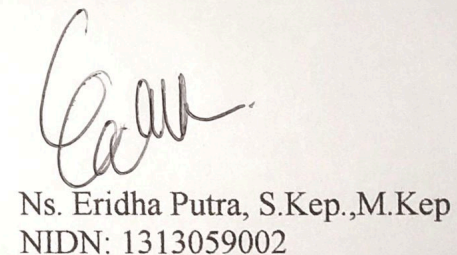 Ns. Eridha Putra, S.Kep.,M.Kep
NIDN: 1313059002